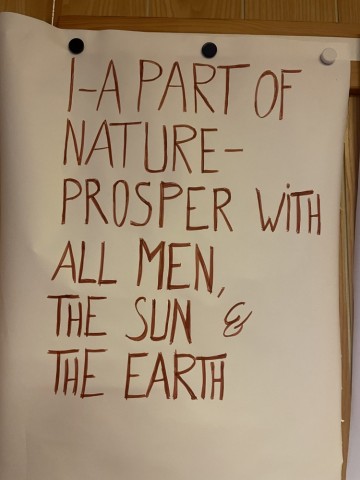 I-A PART OF
NATURE-
PROSPER WiTH
ALL MEN,
THE SUN &
THE EARTH